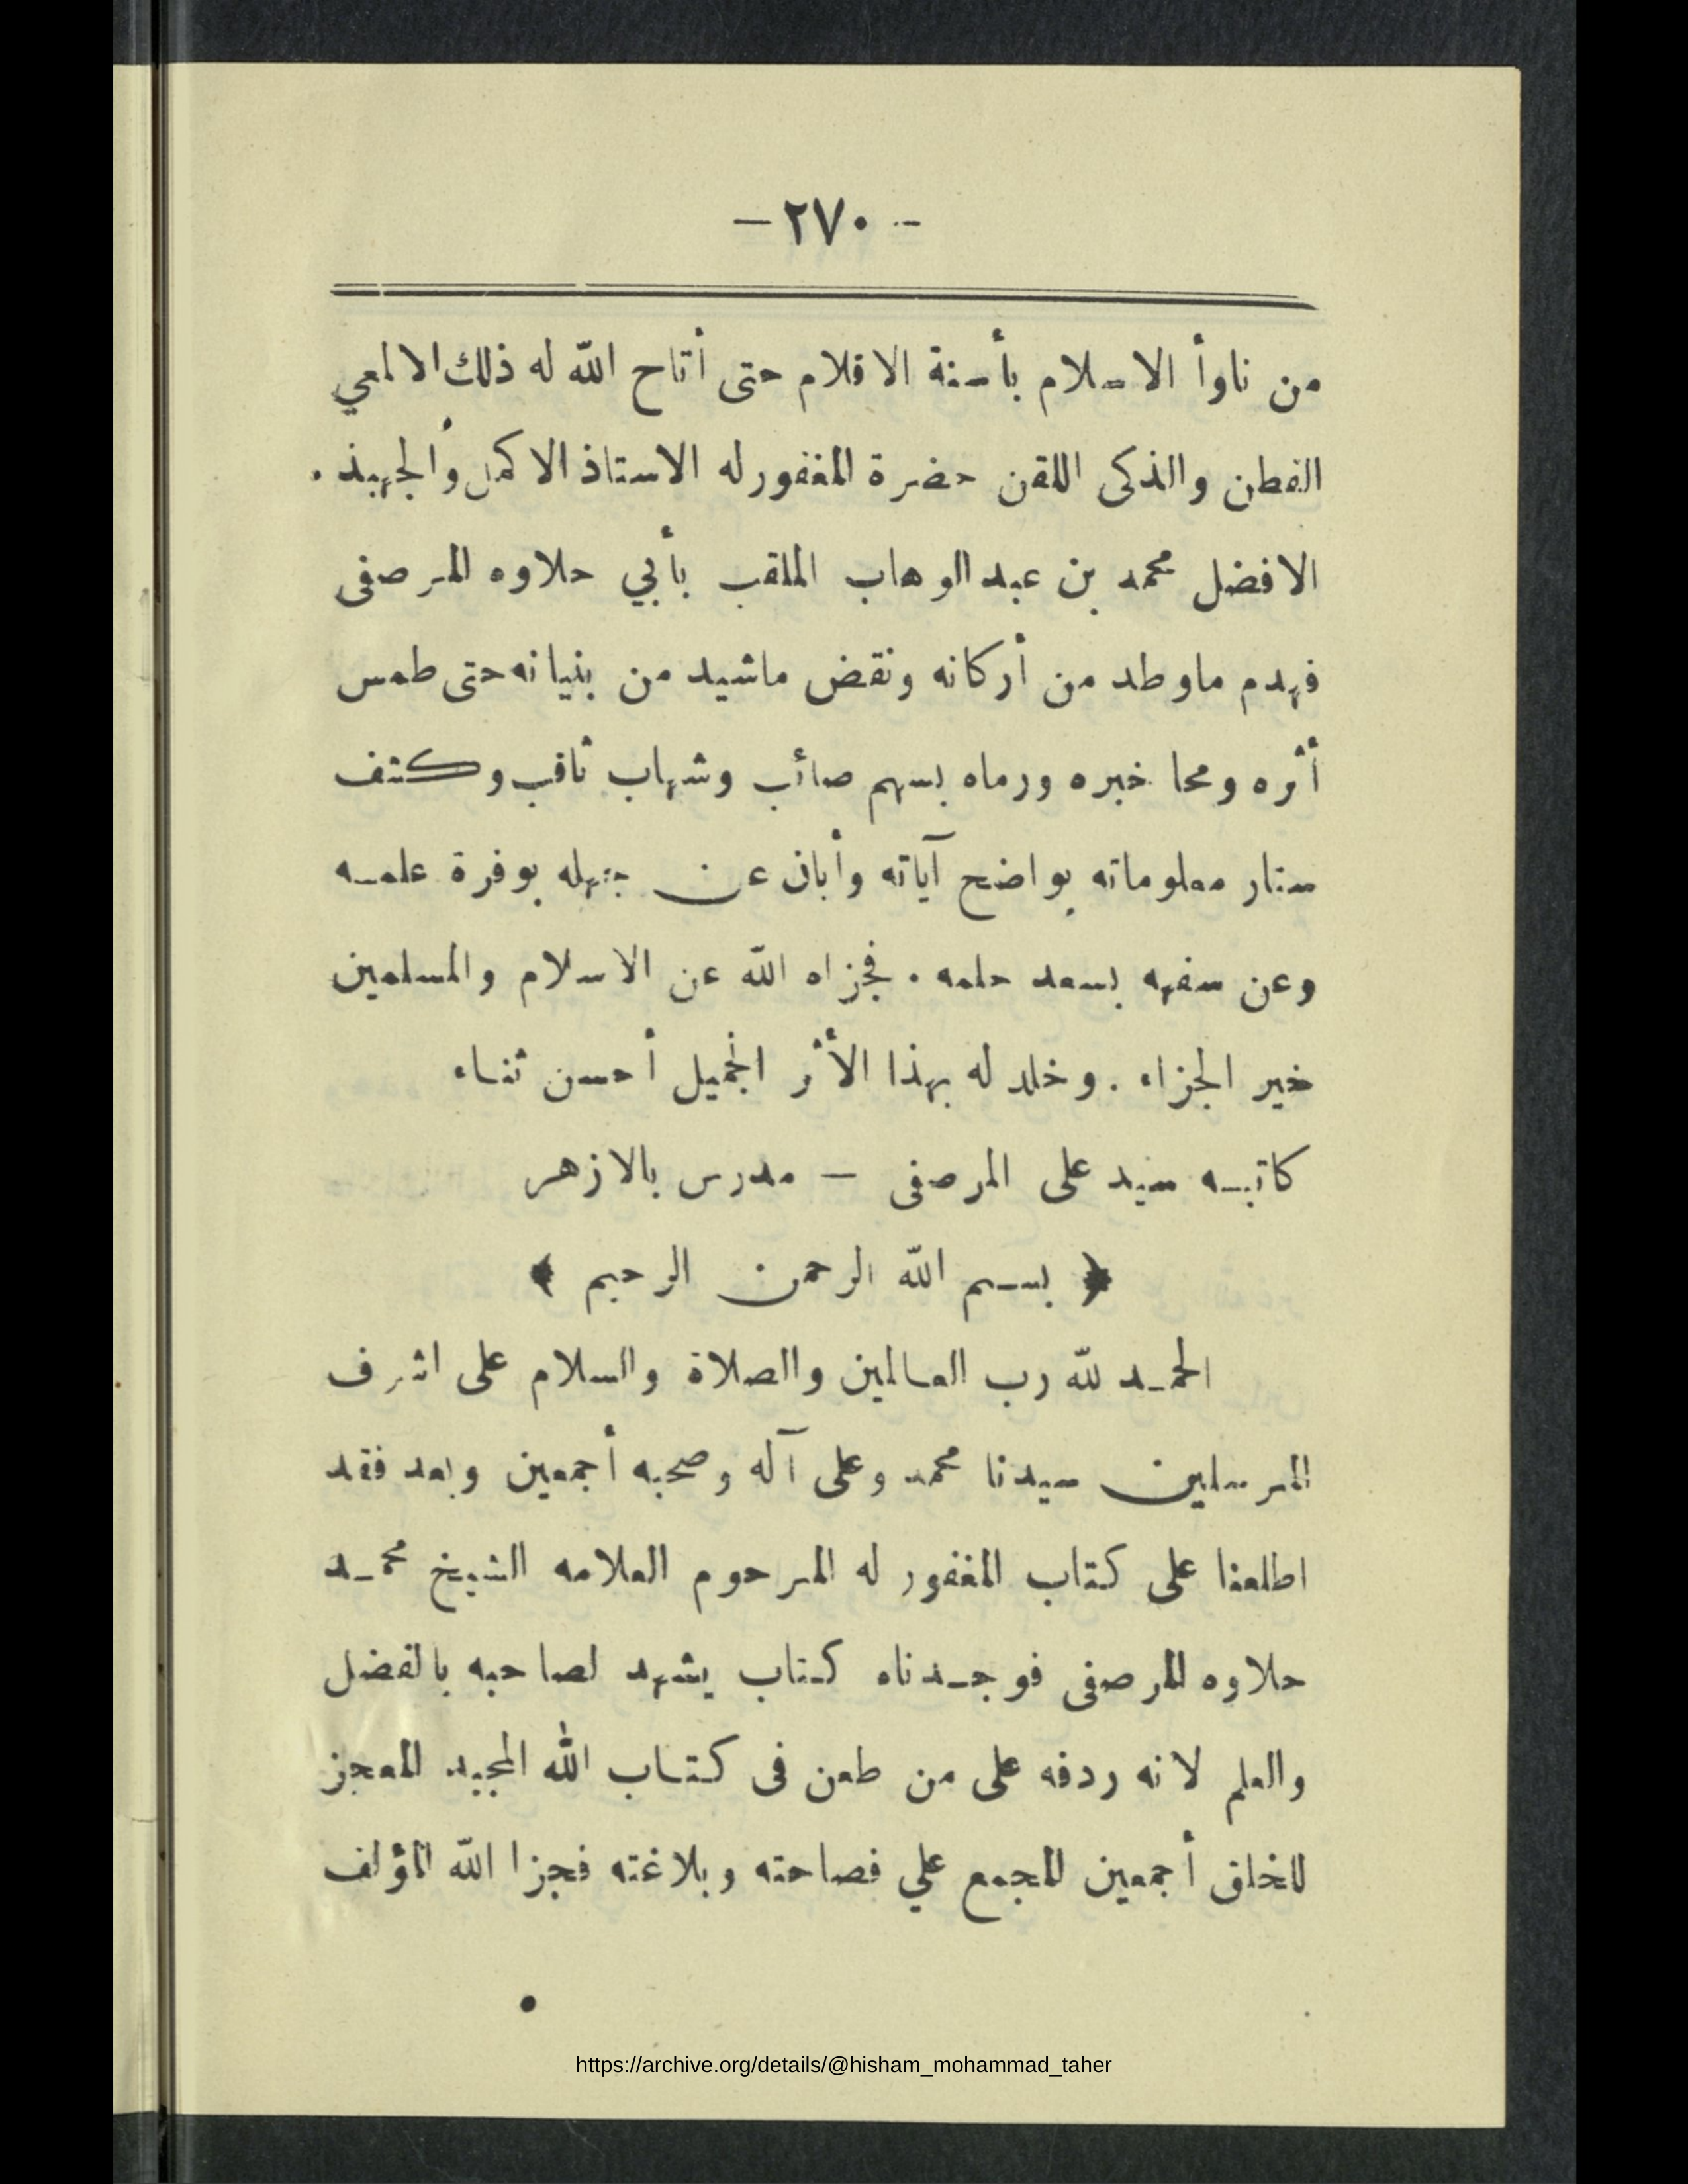 - ٢٧٠ -
من ناوأ الاسلام بأسنة الاقلام حتى أتاح الله له ذلك الالمعي
الفطن والذكى اللقن حضرة المغفور له الاستاذ الاكمل وألجهبذ .
الافضل محمد بن عبد الوهاب الملقب بأبي حلاوه المرصفى
فهدم ماوطد من أركانه ونقض ماشيد من بنيانه حتى طمس
أثره ومحا خبره ورماه بسهم صائب وشهاب ثاقب وكشف
ستار معلوماته بواضح آياته وأبان عن جهله بوفرة علمه
وعن سفهه بسعد حلمه . فجزاه الله عن الاسلام والمسلمين
خير الجزاء . وخلد له بهذا الأثر الجميل أحسن ثناء
كاتبه سيد على المرصفى — مدرس بالازهر
﴿ بسم الله الرحمن الرحيم ﴾
الحمد لله رب العالمين والصلاة والسلام على اشرف
المرسلين سيدنا محمد وعلى آله وصحبه أجمعين وبعد فقد
اطلعنا على كتاب المغفور له المرحوم العلامه الشيخ محمد
حلاوه المرصفى فوجدناه كتاب يشهد لصاحبه بالفضل
والعلم لانه ردفه على من طعن فى كتاب الله المجيد المعجز
للخلق أجمعين المجمع علي فصاحته وبلاغته فجزا الله المؤلف
https://archive.org/details/@hisham_mohammad_taher